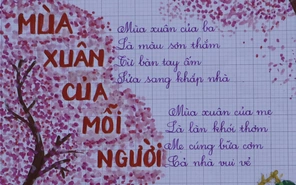 MÙA
XUÂN
CỦA
MỖI
NGƯỜI
Mùa xuân của ba
Là màu sơn thắm
Từ bàn tay ấm
Sửa sang khắp nhà
Mùa xuân của mẹ
Là làn khói thơm
Mẹ cúng bữa cơm
Cả nhà vui vẻ